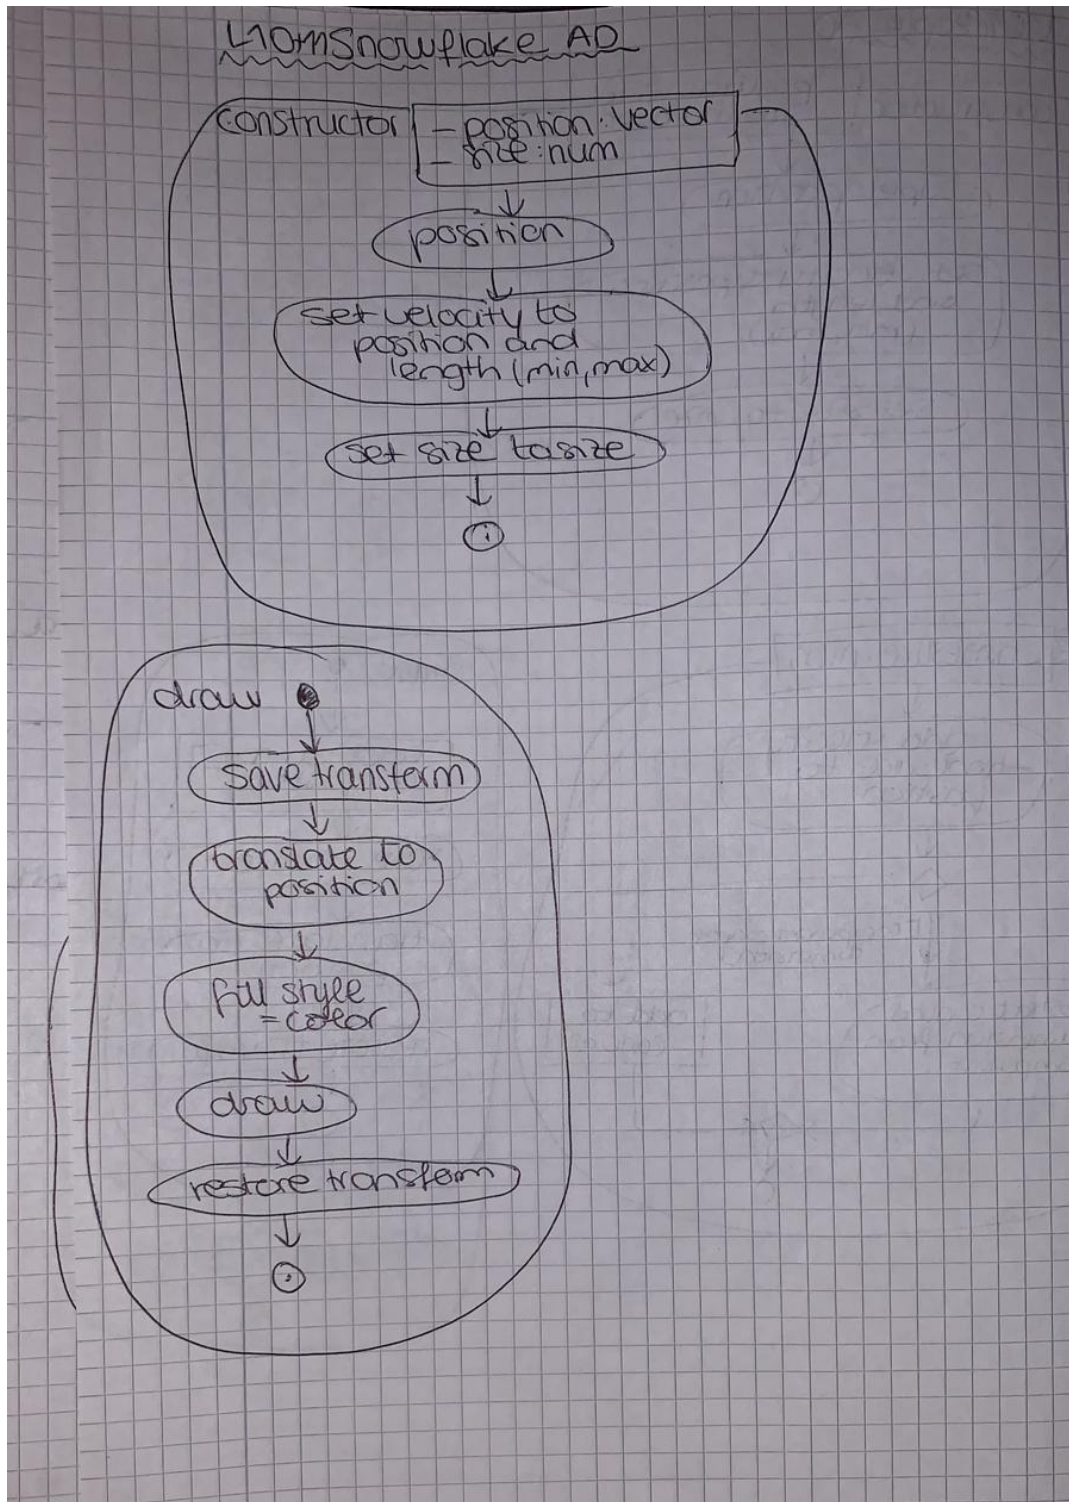 L10mSnowflake AD
constructor
- position: vector
- size: num
position
set velocity to
position and
length (min, max)
set size to size
draw
save transform
translate to
position
fill style
= color
draw
restore transform